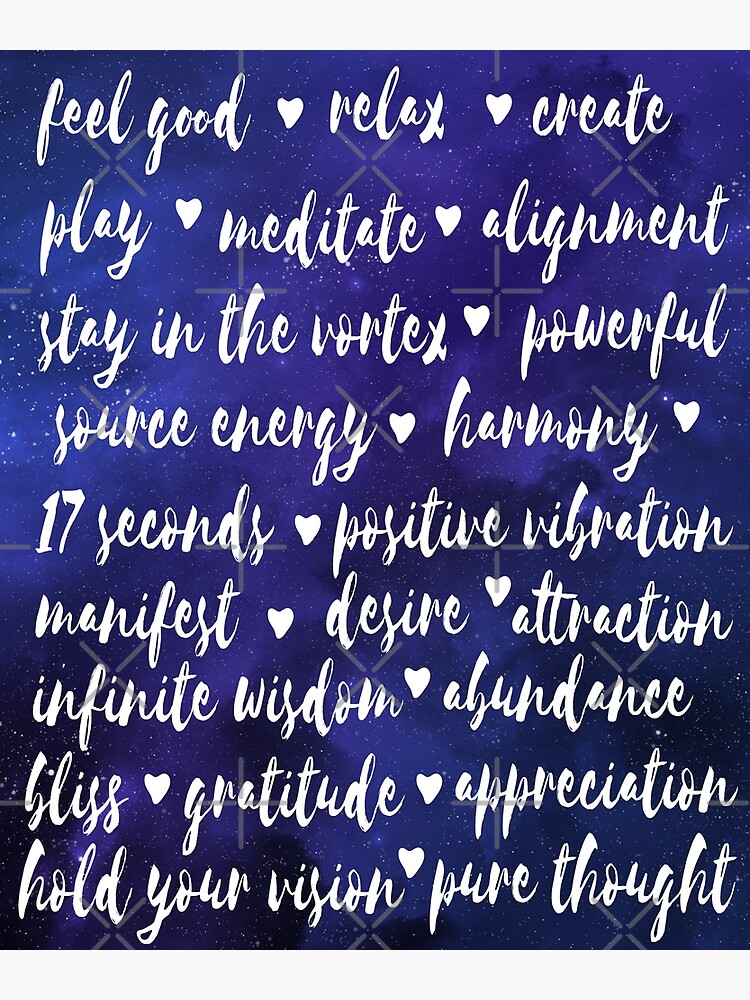 feel good ♥ relax ♥ create
play ♥ meditate ♥ alignment
stay in the vortex ♥ powerful
source energy ♥ harmony ♥
17 seconds ♥ positive vibration
manifest ♥ desire ♥ attraction
infinite wisdom ♥ abundance
bliss ♥ gratitude ♥ appreciation
hold your vision ♥ pure thought